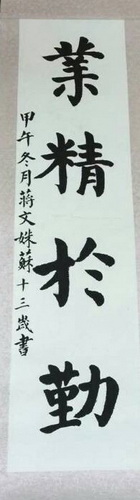 業精於勤
甲午冬月蔣文姝蘇十三歲書